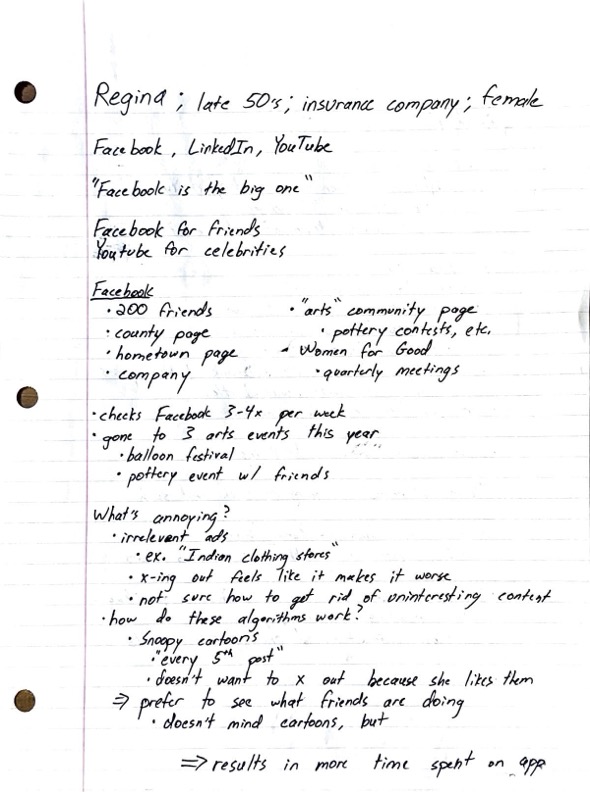 Regina ; late 50's ; insurance company ; female
Facebook , LinkedIn, YouTube
"Facebook is the big one"
Facebook for friends
Youtube for celebrities
Facebook
• 200 friends
• county page
• hometown page
• company
• "arts" community page
• pottery contests, etc.
- Women for Good
• quarterly meetings
• checks Facebook 3-4x per week
• gone to 3 arts events this year
• balloon festival
• pottery event w/ friends
What's annoying?
• irrelevant ads
• ex. "Indian clothing stores"
• x-ing out feels like it makes it worse
• not sure how to get rid of uninteresting content
• how do these algorithms work?
• Snoopy cartoons
• "every 5th post"
• doesn't want to x out because she likes them
⇒ prefer to see what friends are doing
• doesn't mind cartoons, but
⇒ results in more time spent on app